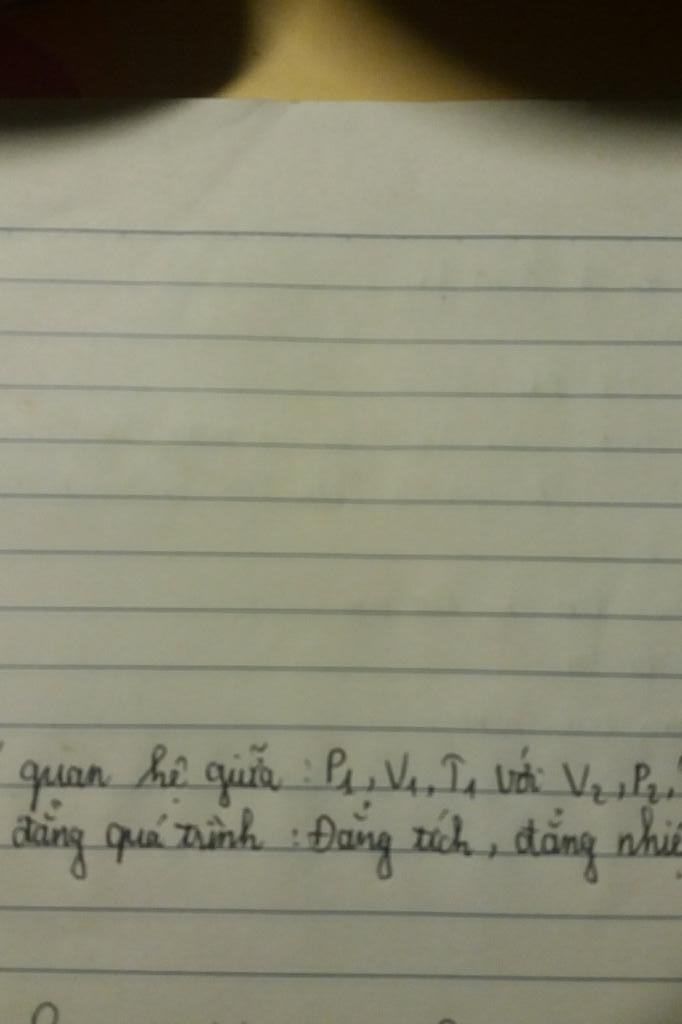 quan hệ giữa : P₁, V₁, T₁ với V₂, P₂,
đẳng quá trình : Đẳng tích, đẳng nhiệ